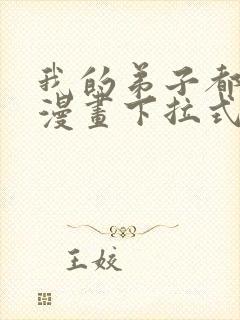 我的弟子都
漫畫下拉式
王姣